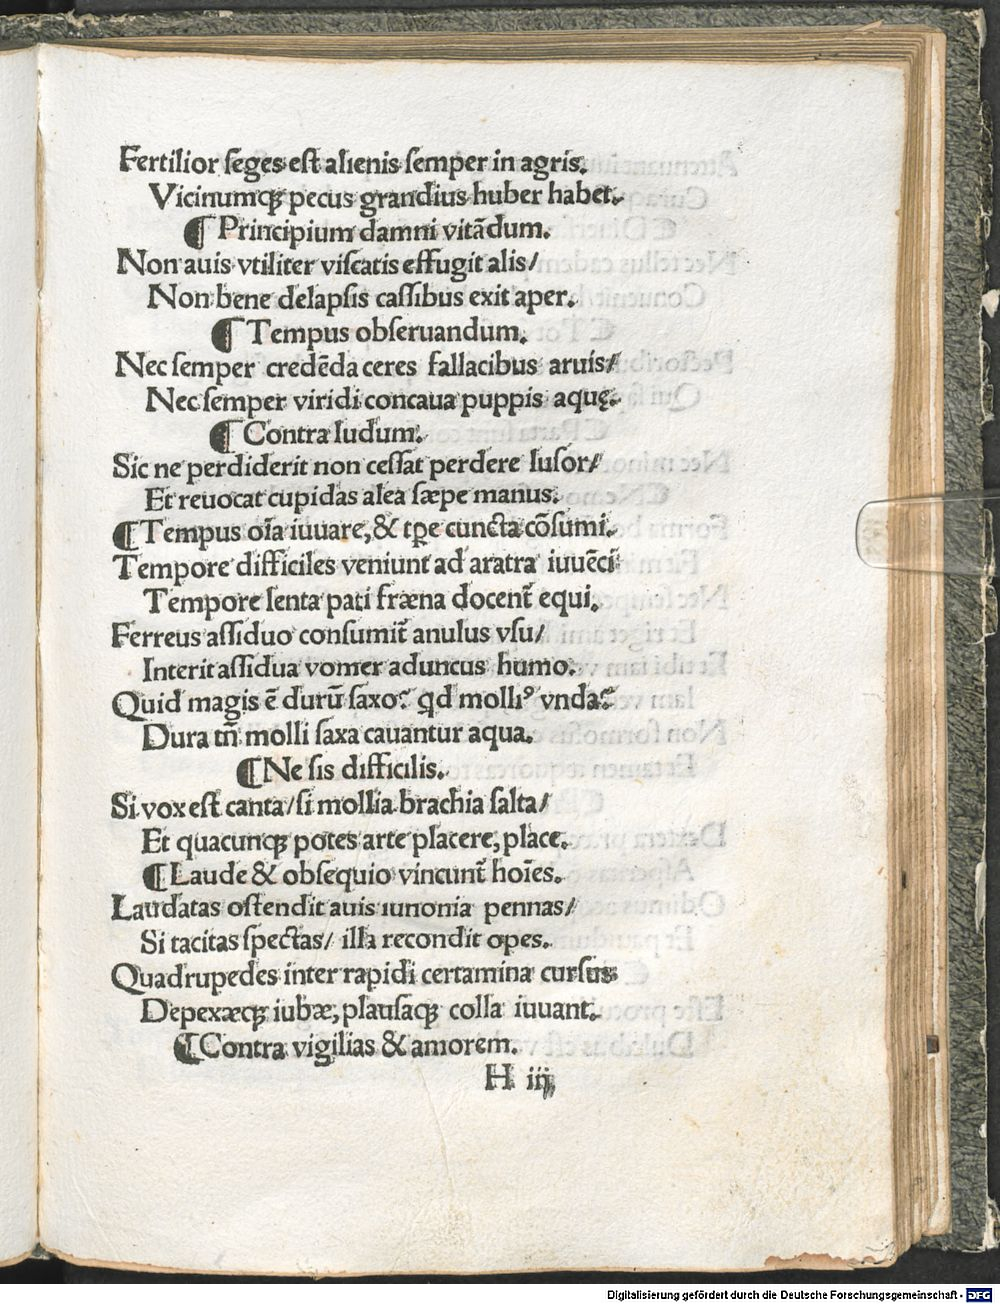 Fertilior seges est alienis semper in agris.
Vicinumqꝫ pecus grandius huber habet.
¶ Principium damni vitãdum.
Non auis vtiliter viscatis effugit alis/
Non bene delapsis cassibus exit aper.
¶ Tempus obseruandum.
Nec semper credẽda ceres fallacibus aruis/
Nec semper viridi concaua puppis aquę.
¶ Contra ludum.
Sic ne perdiderit non cessat perdere lusor/
Et reuocat cupidas alea sæpe manus.
¶ Tempus oĩa iuuare, & tꝑe cuncta cõsumi.
Tempore difficiles veniunt ad aratra iuuẽci
Tempore lenta pati fræna docent̃ equi.
Ferreus assiduo consumit̃ anulus vsu/
Interit assidua vomer aduncus humo.
Quid magis ẽ durũ saxo? qd molliꝰ vnda?
Dura tñ molli saxa cauantur aqua.
¶ Ne sis difficilis.
Si vox est canta/ si mollia brachia salta/
Et quacunqꝫ potes arte placere, place.
¶ Laude & obsequio vincunt̃ hoĩes.
Laudatas ostendit auis iunonia pennas/
Si tacitas spectas/ illa recondit opes.
Quadrupedes inter rapidi certamina cursus
Depexæqꝫ iubæ, plausaqꝫ colla iuuant.
¶ Contra vigilias & amorem.
H iij
Digitalisierung gefördert durch die Deutsche Forschungsgemeinschaft - DFG